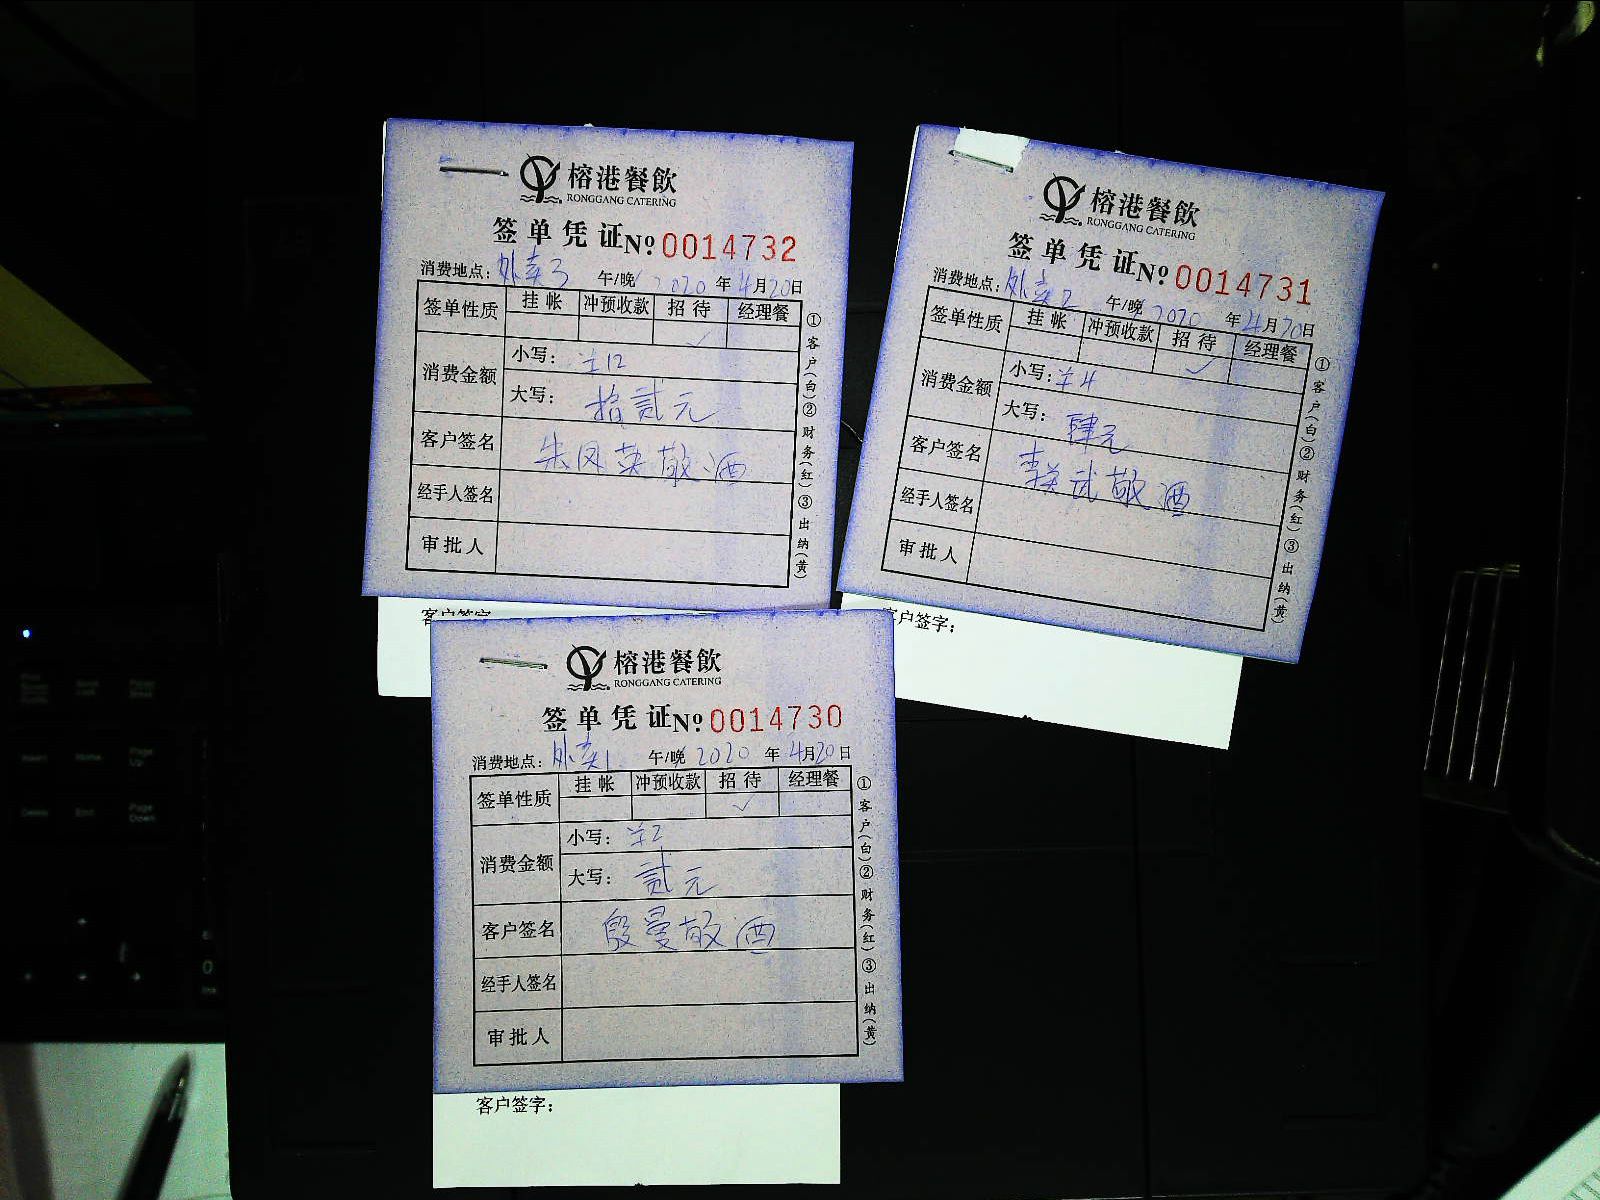 榕港餐飲
RONGGANG CATERING
签单凭证 № 0014732
消费地点: 外卖3 午/晚 2020 年 4月20日
签单性质 挂帐 冲预收款 招待 经理餐
✓
消费金额 小写: ¥12
大写: 拾贰元
客户签名 朱凤英敬酒
经手人签名
审批人
①客户(白)②财务(红)③出纳(黄)
客户签字
榕港餐飲
RONGGANG CATERING
签单凭证 № 0014731
消费地点: 外卖2 午/晚 2020 年 4月20日
签单性质 挂帐 冲预收款 招待 经理餐
✓
消费金额 小写: ¥4
大写: 肆元
客户签名 武敬酒
经手人签名
审批人
①客户(白)②财务(红)③出纳(黄)
客户签字:
榕港餐飲
RONGGANG CATERING
签单凭证 № 0014730
消费地点: 外卖1 午/晚 2020 年 4月20日
签单性质 挂帐 冲预收款 招待 经理餐
✓
消费金额 小写: ¥2
大写: 贰元
客户签名 殷曼敬酒
经手人签名
审批人
①客户(白)②财务(红)③出纳(黄)
客户签字: